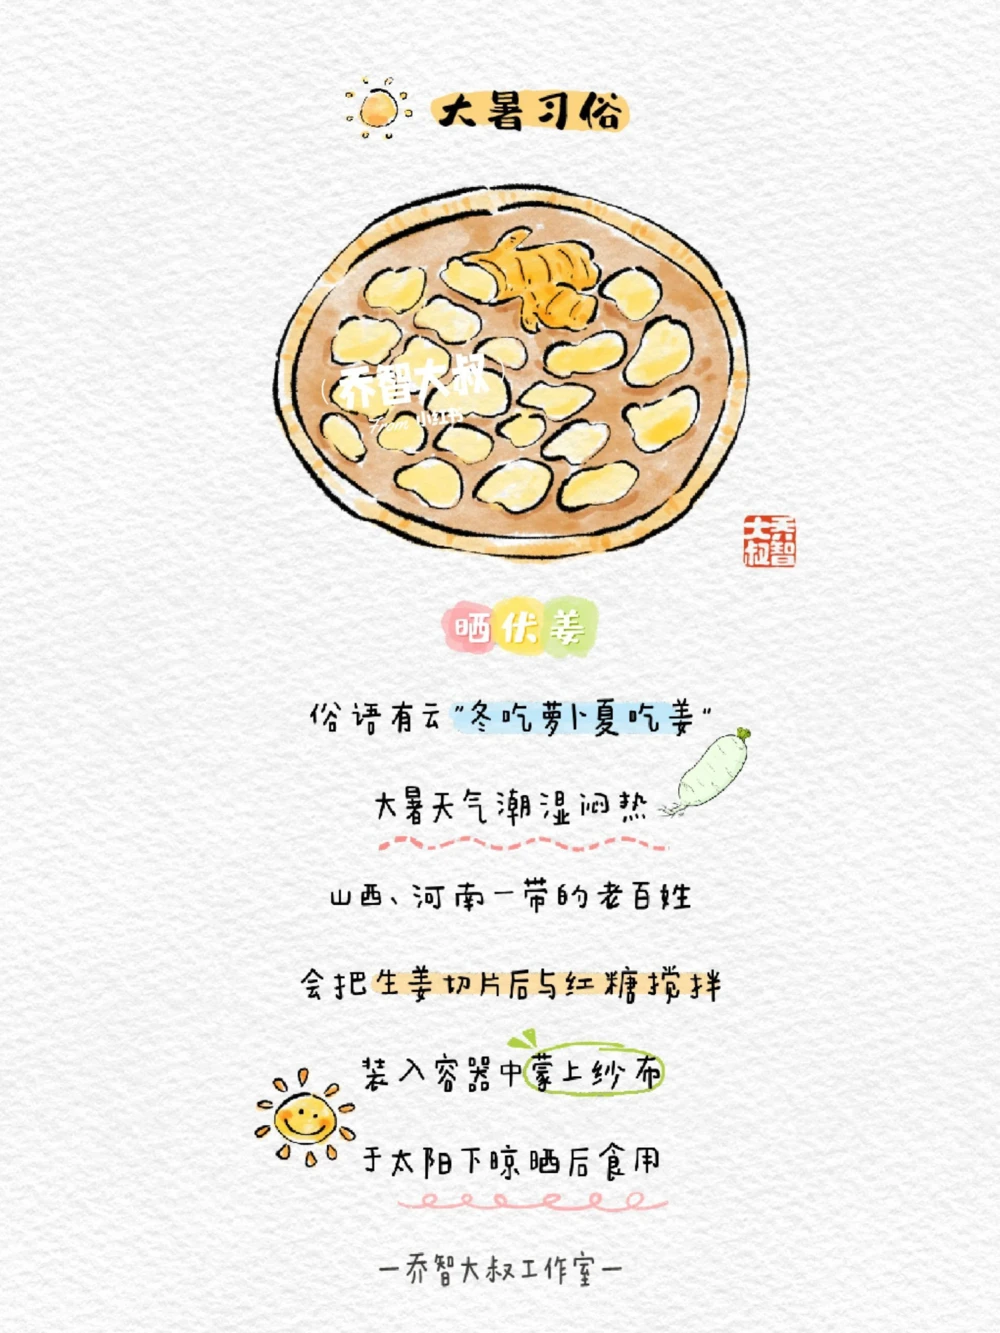 大暑习俗
乔智大叔
From 小红书
乔智大叔
晒伏姜
俗语有云"冬吃萝卜夏吃姜"
大暑天气潮湿闷热
山西、河南一带的老百姓
会把生姜切片后与红糖搅拌
装入容器中蒙上纱布
于太阳下晾晒后食用
—乔智大叔工作室—